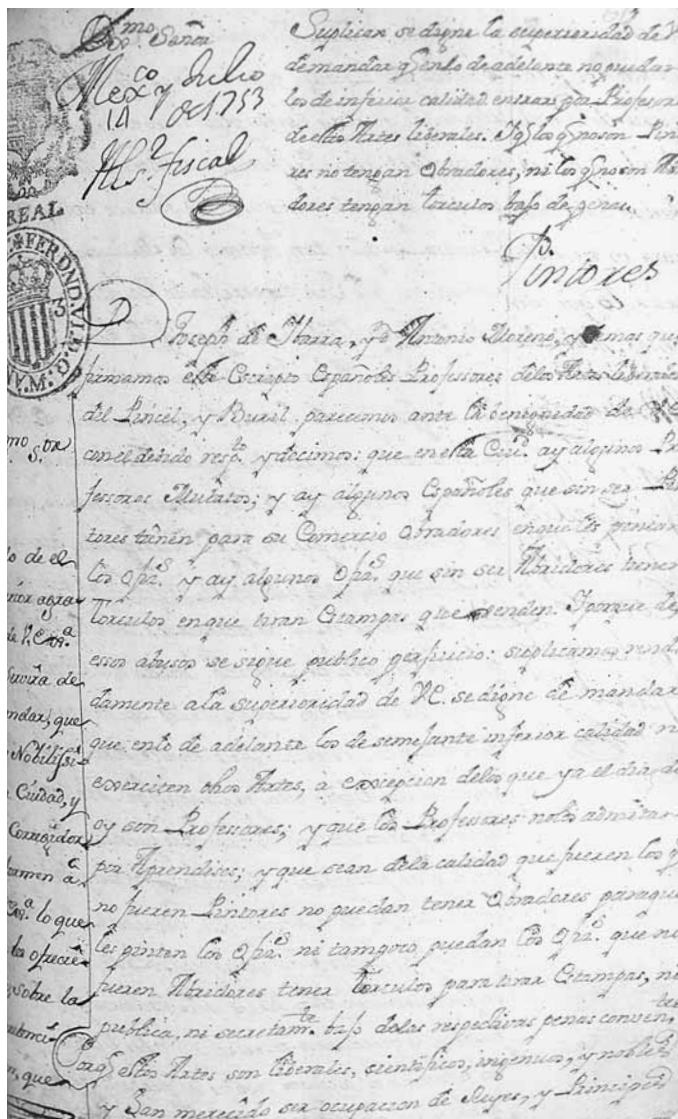 Exmo. Señor
Mexco y Julio
14 de 1753
Al Sr. fiscal
Suplican se digne la superioridad de V
de mandar q. en lo de adelante no puedan
los de inferior calidad entrar por Profesore
de estos Artes liberales. Y q. los q. no son Pin
res no tengan Obradores, ni los q. no son Abri
dores tengan torculos bajo de penas.
REAL
FERDND.VI.D.G.
3
Pintores
Joseph de Ibarra, y Dn. Antonio Moreno, y demas que
firmamos este Escripto Españoles Professores delos Artes liberales
del Pincel, y Buril. parecemos ante la benignidad de VE
con el devido respto. y decimos: que en esta Ciud. ay algunos Pro
fessores Mulatos; y ay algunos Españoles que sin ser Pin
tores tienen para su Comercio Obradores en que les pintan
los Ofizs. y ay algunos Ofizs. que sin ser Abridores tienen
Torculos en que tiran Estampas que venden. Y porque de
essos abusos se sigue publico perjuicio: suplicamos rendi
damente a la superioridad de VE. se digne de mandar
que en lo de adelante los de semejante inferior calidad no
exerciten dhos Artes, à excepcion delos que ya el dia de
oy son Professores; y que los Professores no los admitan
por Aprendises; y que sean dela calidad que fueren los q
no fueren Pintores no puedan tener Obradores para que
les pinten los Ofizs. ni tampoco puedan los Ofizs. que no
fueren Abridores tener torculos para tirar Estampas, ni
publica, ni secretamte. bajo delas respectivas penas conventes
Porq. estos Artes son liberales, cientificos, ingenuos, y nobles
y han merecido ser ocupacion de Reyes, y Principes
mo. Sor
lo de el
rior agra
de V. Exa.
servira de
mandar, que
Nobilissi
Ciudad, y
Corregidor
Exa. lo que
sobre la
n, que